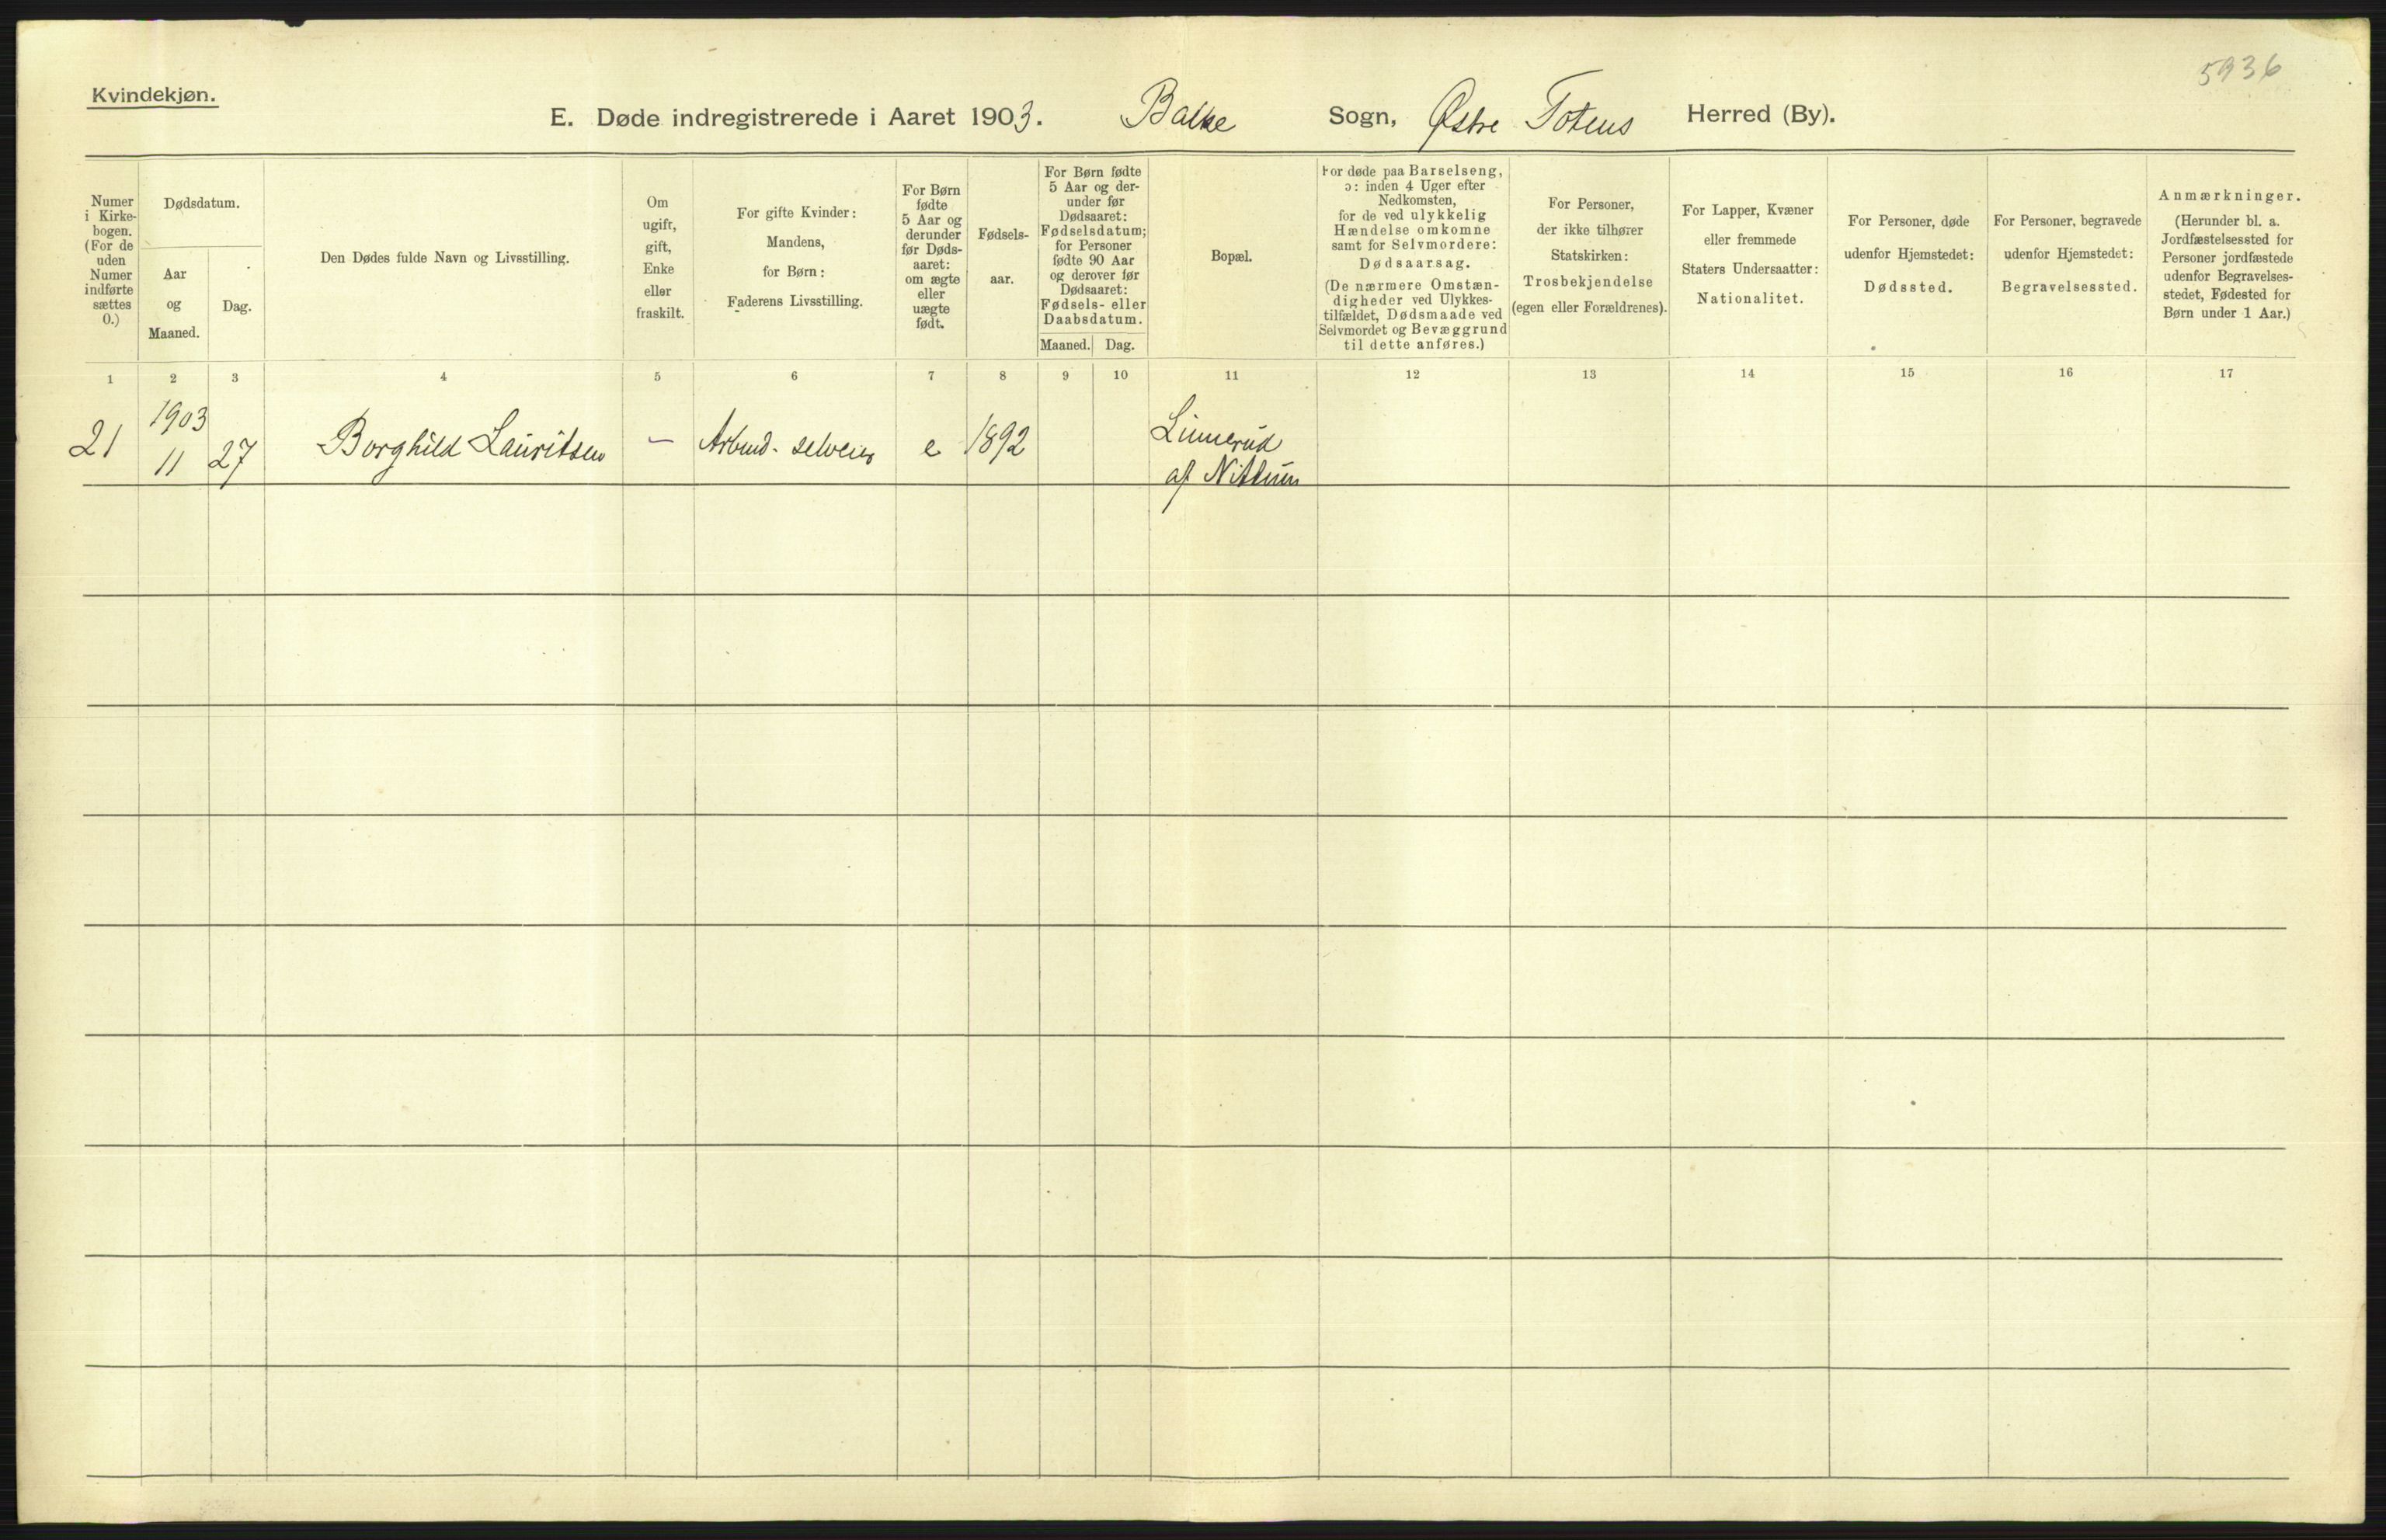 5936
Kvindekjøn.
E. Døde indregistrerede i Aaret 1903. Balke Sogn, Østre Totens Herred (By).
Numer
i Kirke-
bogen.
(For de
uden
Numer
indførte
sættes
0.)
Dødsdatum.
Aar
og
Maaned.
Dag.
Den Dødes fulde Navn og Livsstilling.
Om
ugift,
gift,
Enke
eller
fraskilt.
For gifte Kvinder:
Mandens,
for Børn:
Faderens Livsstilling.
For Børn
fødte
5 Aar og
derunder
før Døds-
aaret:
om ægte
eller
uægte
født.
Fødsels-
aar.
For Børn fødte
5 Aar og der-
under før
Dødsaaret:
Fødselsdatum;
for Personer
fødte 90 Aar
og derover før
Dødsaaret:
Fødsels- eller
Daabsdatum.
Maaned. Dag.
Bopæl.
For døde paa Barselseng,
ɔ: inden 4 Uger efter
Nedkomsten,
for de ved ulykkelig
Hændelse omkomne
samt for Selvmordere:
Dødsaarsag.
(De nærmere Omstæn-
digheder ved Ulykkes-
tilfældet, Dødsmaade ved
Selvmordet og Bevæggrund
til dette anføres.)
For Personer,
der ikke tilhører
Statskirken:
Trosbekjendelse
(egen eller Forældrenes).
For Lapper, Kvæner
eller fremmede
Staters Undersaatter:
Nationalitet.
For Personer, døde
udenfor Hjemstedet:
Dødssted.
For Personer, begravede
udenfor Hjemstedet:
Begravelsessted.
Anmærkninger.
(Herunder bl. a.
Jordfæstelsessted for
Personer jordfæstede
udenfor Begravelses-
stedet, Fødested for
Børn under 1 Aar.)
1 2 3 4 5 6 7 8 9 10 11 12 13 14 15 16 17
1903
21 11 27 Borghild Lauritsen — selveier e 1892 Linnerud
af